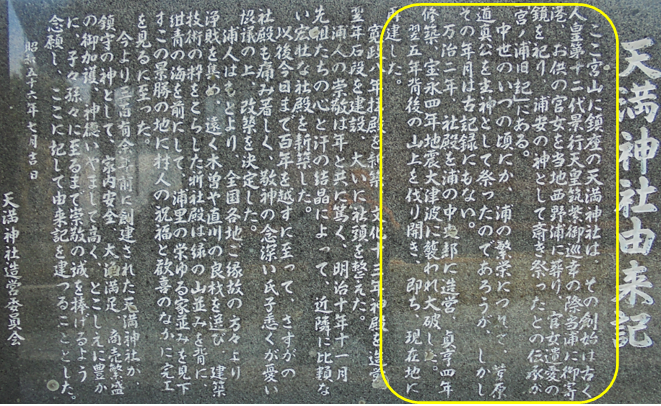 天満神社由来記
ここ宮山に鎮座の天満神社は、その創始は古く
人皇第十二代景行天皇筑紫御巡幸の際当浦に御寄
港、お供の官女を当地西野浦に葬り、官女遺愛の
鏡を祀り、浦安の神として斎き祭ったとの伝承が
宮ノ浦旧記にある。
中世のいつの頃にか、浦の繁栄につれて、菅原
道真公を主神として祭ったのであろうが、しかし
その年月は古記録にもない。
万治二年、社殿を浦の中央部に造営、貞享四年
修築、宝永四年地震大津波に襲われ大破した。
翌五年背後の山上を伐り開き、即ち、現在地に
再建した。
寛政八年拝殿を新築、文化十三年神殿を造営
翌年石段を建設、大いに社頭を整えた。
浦人の崇敬は年と共に篤く、明治十年十一月
先祖たちの心と汗の結晶によって、近隣に比類な
い宏壮な社殿を新築した。
以後今日まで百年を越すに至って、さすがの
社殿も痛み著しく、敬神の念深い氏子悉くが憂い
協議の上、改築を決定した。
浦人はもとより、全国各地ご縁故の方々より
浄財を集め、遠く木曽や直川の良材を選び、建築
技術の粋をこらした新社殿は緑の山並みを背に、
紺青の海を前にして、浦里の栄ゆる家並みを見下
すこの景勝の地に村人の祝福と歓喜のなかに完工
を見るに至った。
今より三百有余年前に創建された天満神社が、
鎮守の神として、家内安全、大漁満足、商売繁盛
の御加護、神徳いやまして高く、とこしえに豊か
に、子々孫々に至るまで崇敬の誠を捧げるよう
念願し、ここに記して由来記を建つることとした。
昭和五十六年七月吉日
天満神社造営委員会